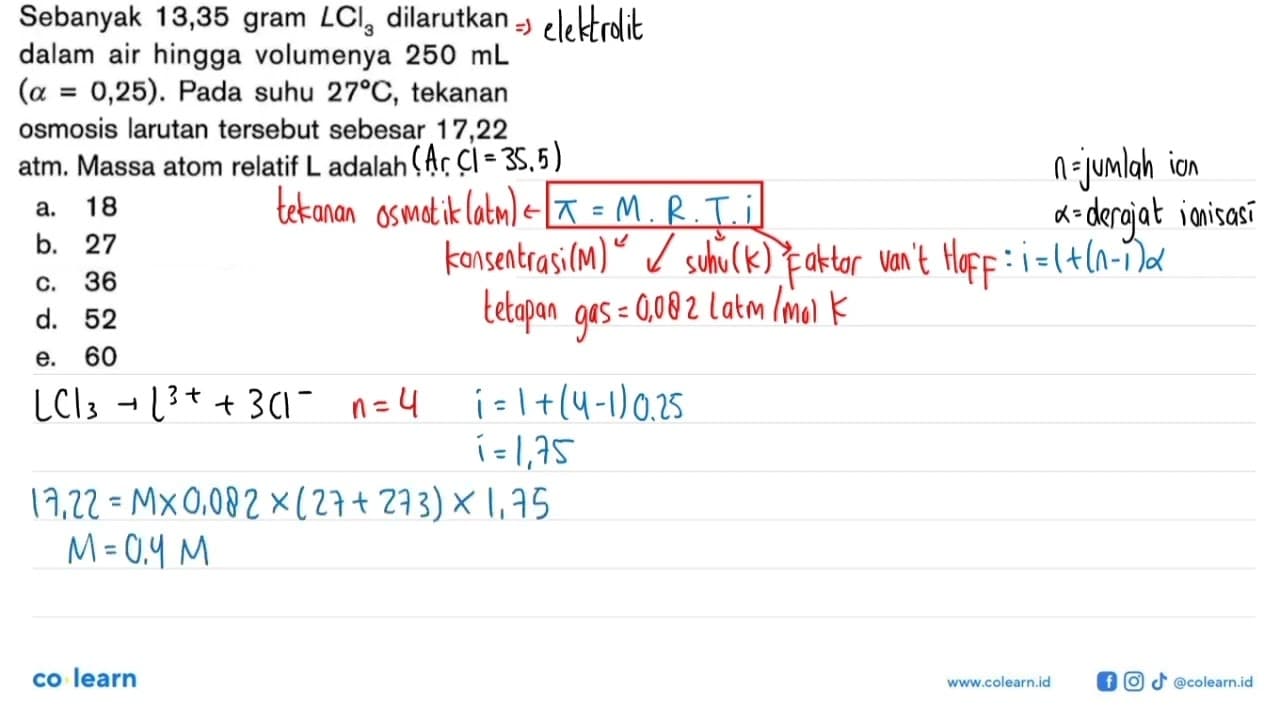 Sebanyak 13,35 gram LCl₃ dilarutkan => elektrolit
dalam air hingga volumenya 250 mL
(α = 0,25). Pada suhu 27°C, tekanan
osmosis larutan tersebut sebesar 17,22
atm. Massa atom relatif L adalah . . . . (Ar Cl = 35.5)
n = jumlah ion
a. 18
tekanan osmotik (atm) ← π = M . R . T . i
α = derajat ionisasi
b. 27
konsentrasi (M) ↙ ↙ suhu (K) Faktor van't Hoff : i = 1 + (n-1)α
c. 36
tetapan gas = 0,082 L atm / mol K
d. 52
e. 60
LCl₃ → L³⁺ + 3Cl⁻ n = 4 i = 1 + (4-1) 0.25
i = 1,75
17,22 = M × 0,082 × (27 + 273) × 1,75
M = 0.4 M
co learn
www.colearn.id @colearn.id